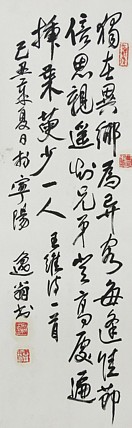 獨在異鄉為异客每逢佳節
倍思親遥知兄弟登高處遍
插茱萸少一人 王維诗一首
己丑年夏日於寧陽
翁书